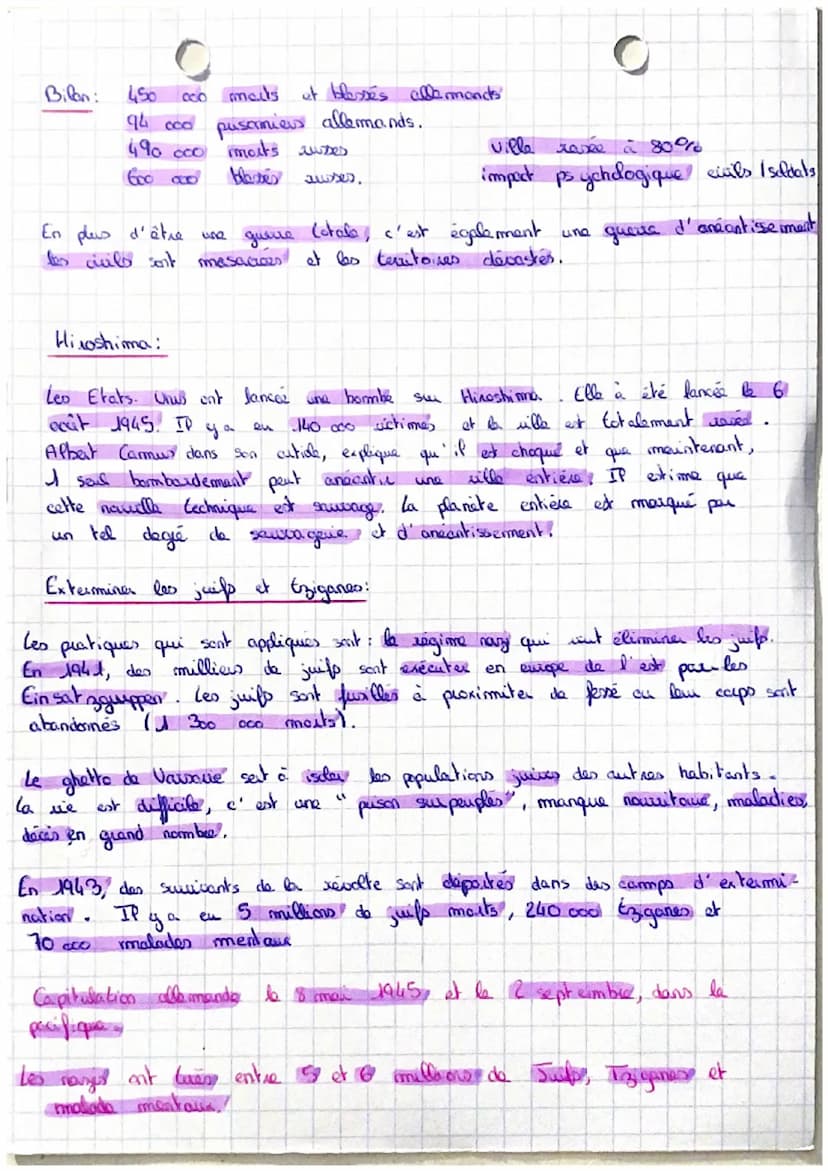 Bilan: 450 000 morts et blessés allemands
94 000 prisoniers allemands.
490 000 morts russes
600 000 blessés russes.
Ville rasée à 80%
impact psychologique civils / soldats
En plus d'être une guerre totale, c'est également une guerre d'anéantissement
les civils sont massacrées et les territoires dévastés.
Hiroshima:
Les Etats-Unis ont lancée une bombe sur Hiroshima. Elle à été lancée le 6
août 1945. Il y a eu 140 000 victimes et la ville est totalement rasée.
Albert Cammus dans son article, explique qu'il est choqué et que maintenant,
1 seul bombardement peut anéantir une ville entière. Il estime que
cette nouvelle technique est sauvage. La planète entière est marqué par
un tel degré de sauvagerie et d'anéantissement.
Exterminer les juifs et tziganes:
Les pratiques qui sont appliqués sont : le régime nazy qui veut éliminer les juifs.
En 1941, des milliers de juifs sont exécuter en europe de l'est par les
Einsatzgruppen. Les juifs sont fusillés à proximiter de fossé ou leur corps sont
abandonnés (1 300 000 morts).
Le ghetto de Varsovie sert à isoler les populations juives des autres habitants.
La vie est difficile, c'est une "prison surpeuplés", manque nourriture, maladies,
décès en grand nombre.
En 1943, des survivants de la révolte sont déportés dans des camps d'extermi-
nation. Il y a eu 5 millions de juifs morts, 240 000 tziganes et
70 000 malades mentaux
Capitulation allemande le 8 mai 1945, et le 2 septembre, dans le
pacifique.
Les nazys ont tués entre 5 et 6 millions de Juifs, Tziganes et
malade mentaux.